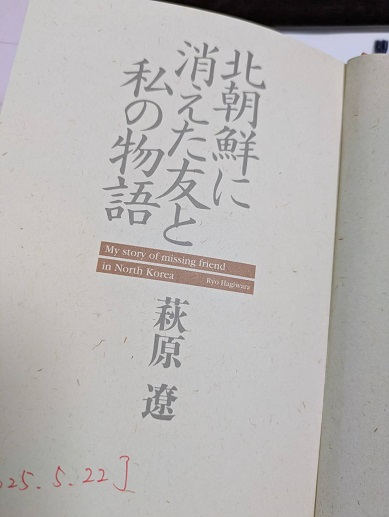 北朝鮮に
消えた友と
私の物語
My story of missing friend
in North Korea
Ryo Hagiwara
萩原 遼
25.5.22]